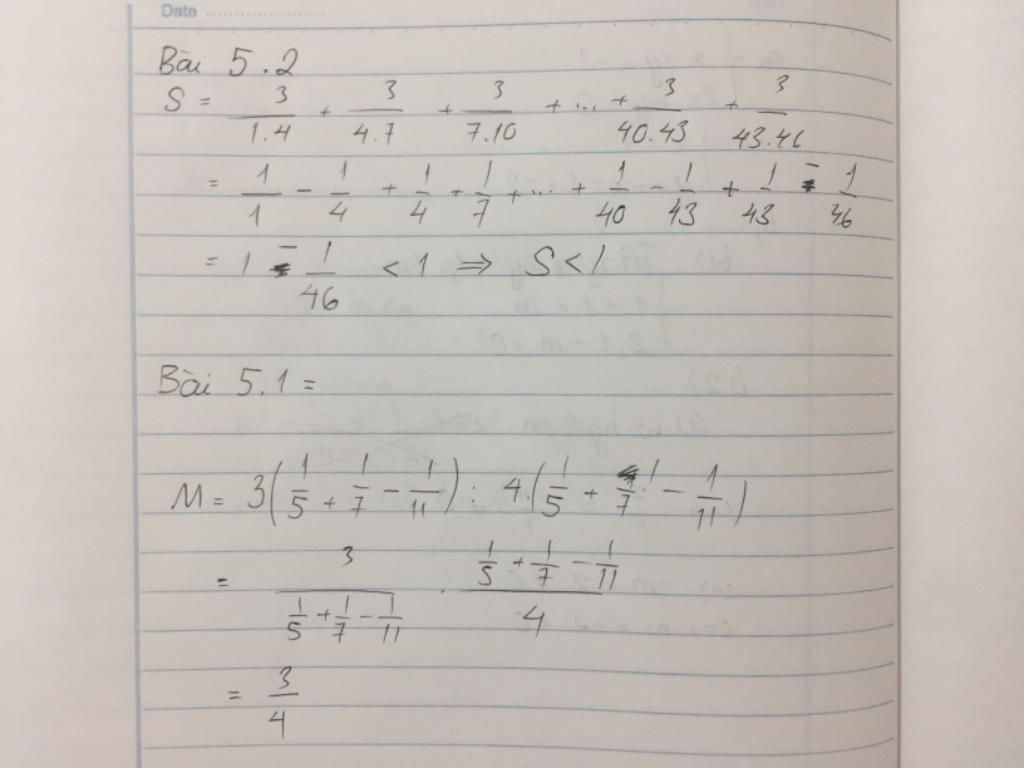 Date
Bài 5.2
S = 3/1.4 + 3/4.7 + 3/7.10 + ... + 3/40.43 + 3/43.46
= 1/1 - 1/4 + 1/4 + 1/7 + ... + 1/40 - 1/43 + 1/43 - 1/46
= 1 - 1/46 < 1 ⇒ S < 1
Bài 5.1 =
M = 3(1/5 + 1/7 - 1/11) : 4(1/5 + 1/7 - 1/11)
= 3/(1/5 + 1/7 - 1/11) . (1/5 + 1/7 - 1/11)/4
= 3/4